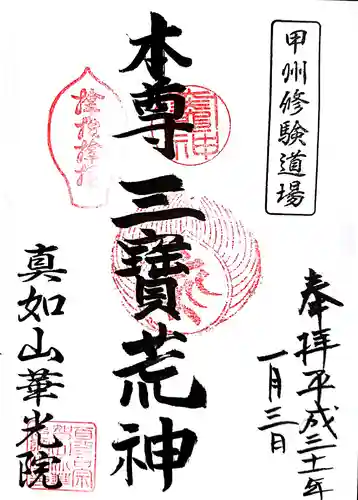 甲州修験道場
奉拝平成三十一年
一月三日
本尊三寶荒神
真如山華光院